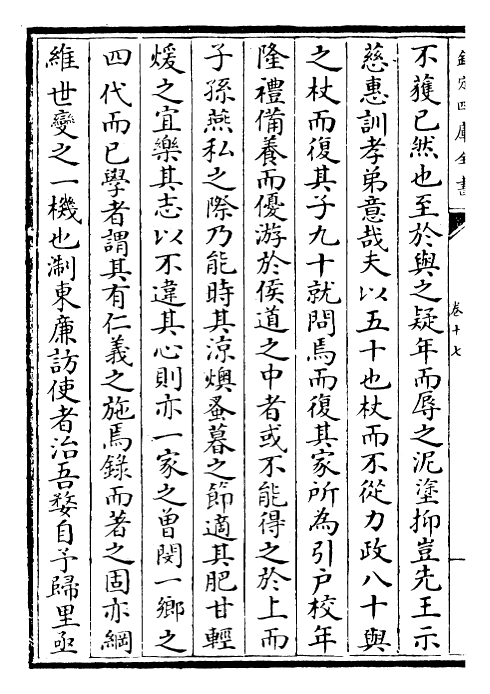 欽定四庫全書
卷十七
不獲已然也至於與之疑年而辱之泥塗抑豈先王示
慈惠訓孝弟意哉夫以五十也杖而不從力政八十與
之杖而復其子九十就問焉而復其家所為引戶校年
隆禮備養而優游於侯道之中者或不能得之於上而
子孫燕私之際乃能時其涼燠蚤暮之節適其肥甘輕
煖之宜樂其志以不違其心則亦一家之曾閔一鄉之
四代而已學者謂其有仁義之施焉錄而著之固亦綱
維世變之一機也淛東廉訪使者治吾婺自予歸里亟